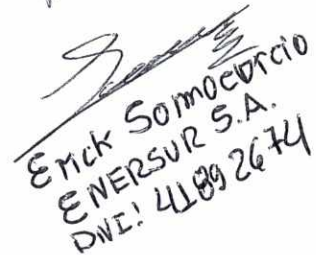 Erick Sormocurcio
ENERSUR S.A.
DNI: 41892674